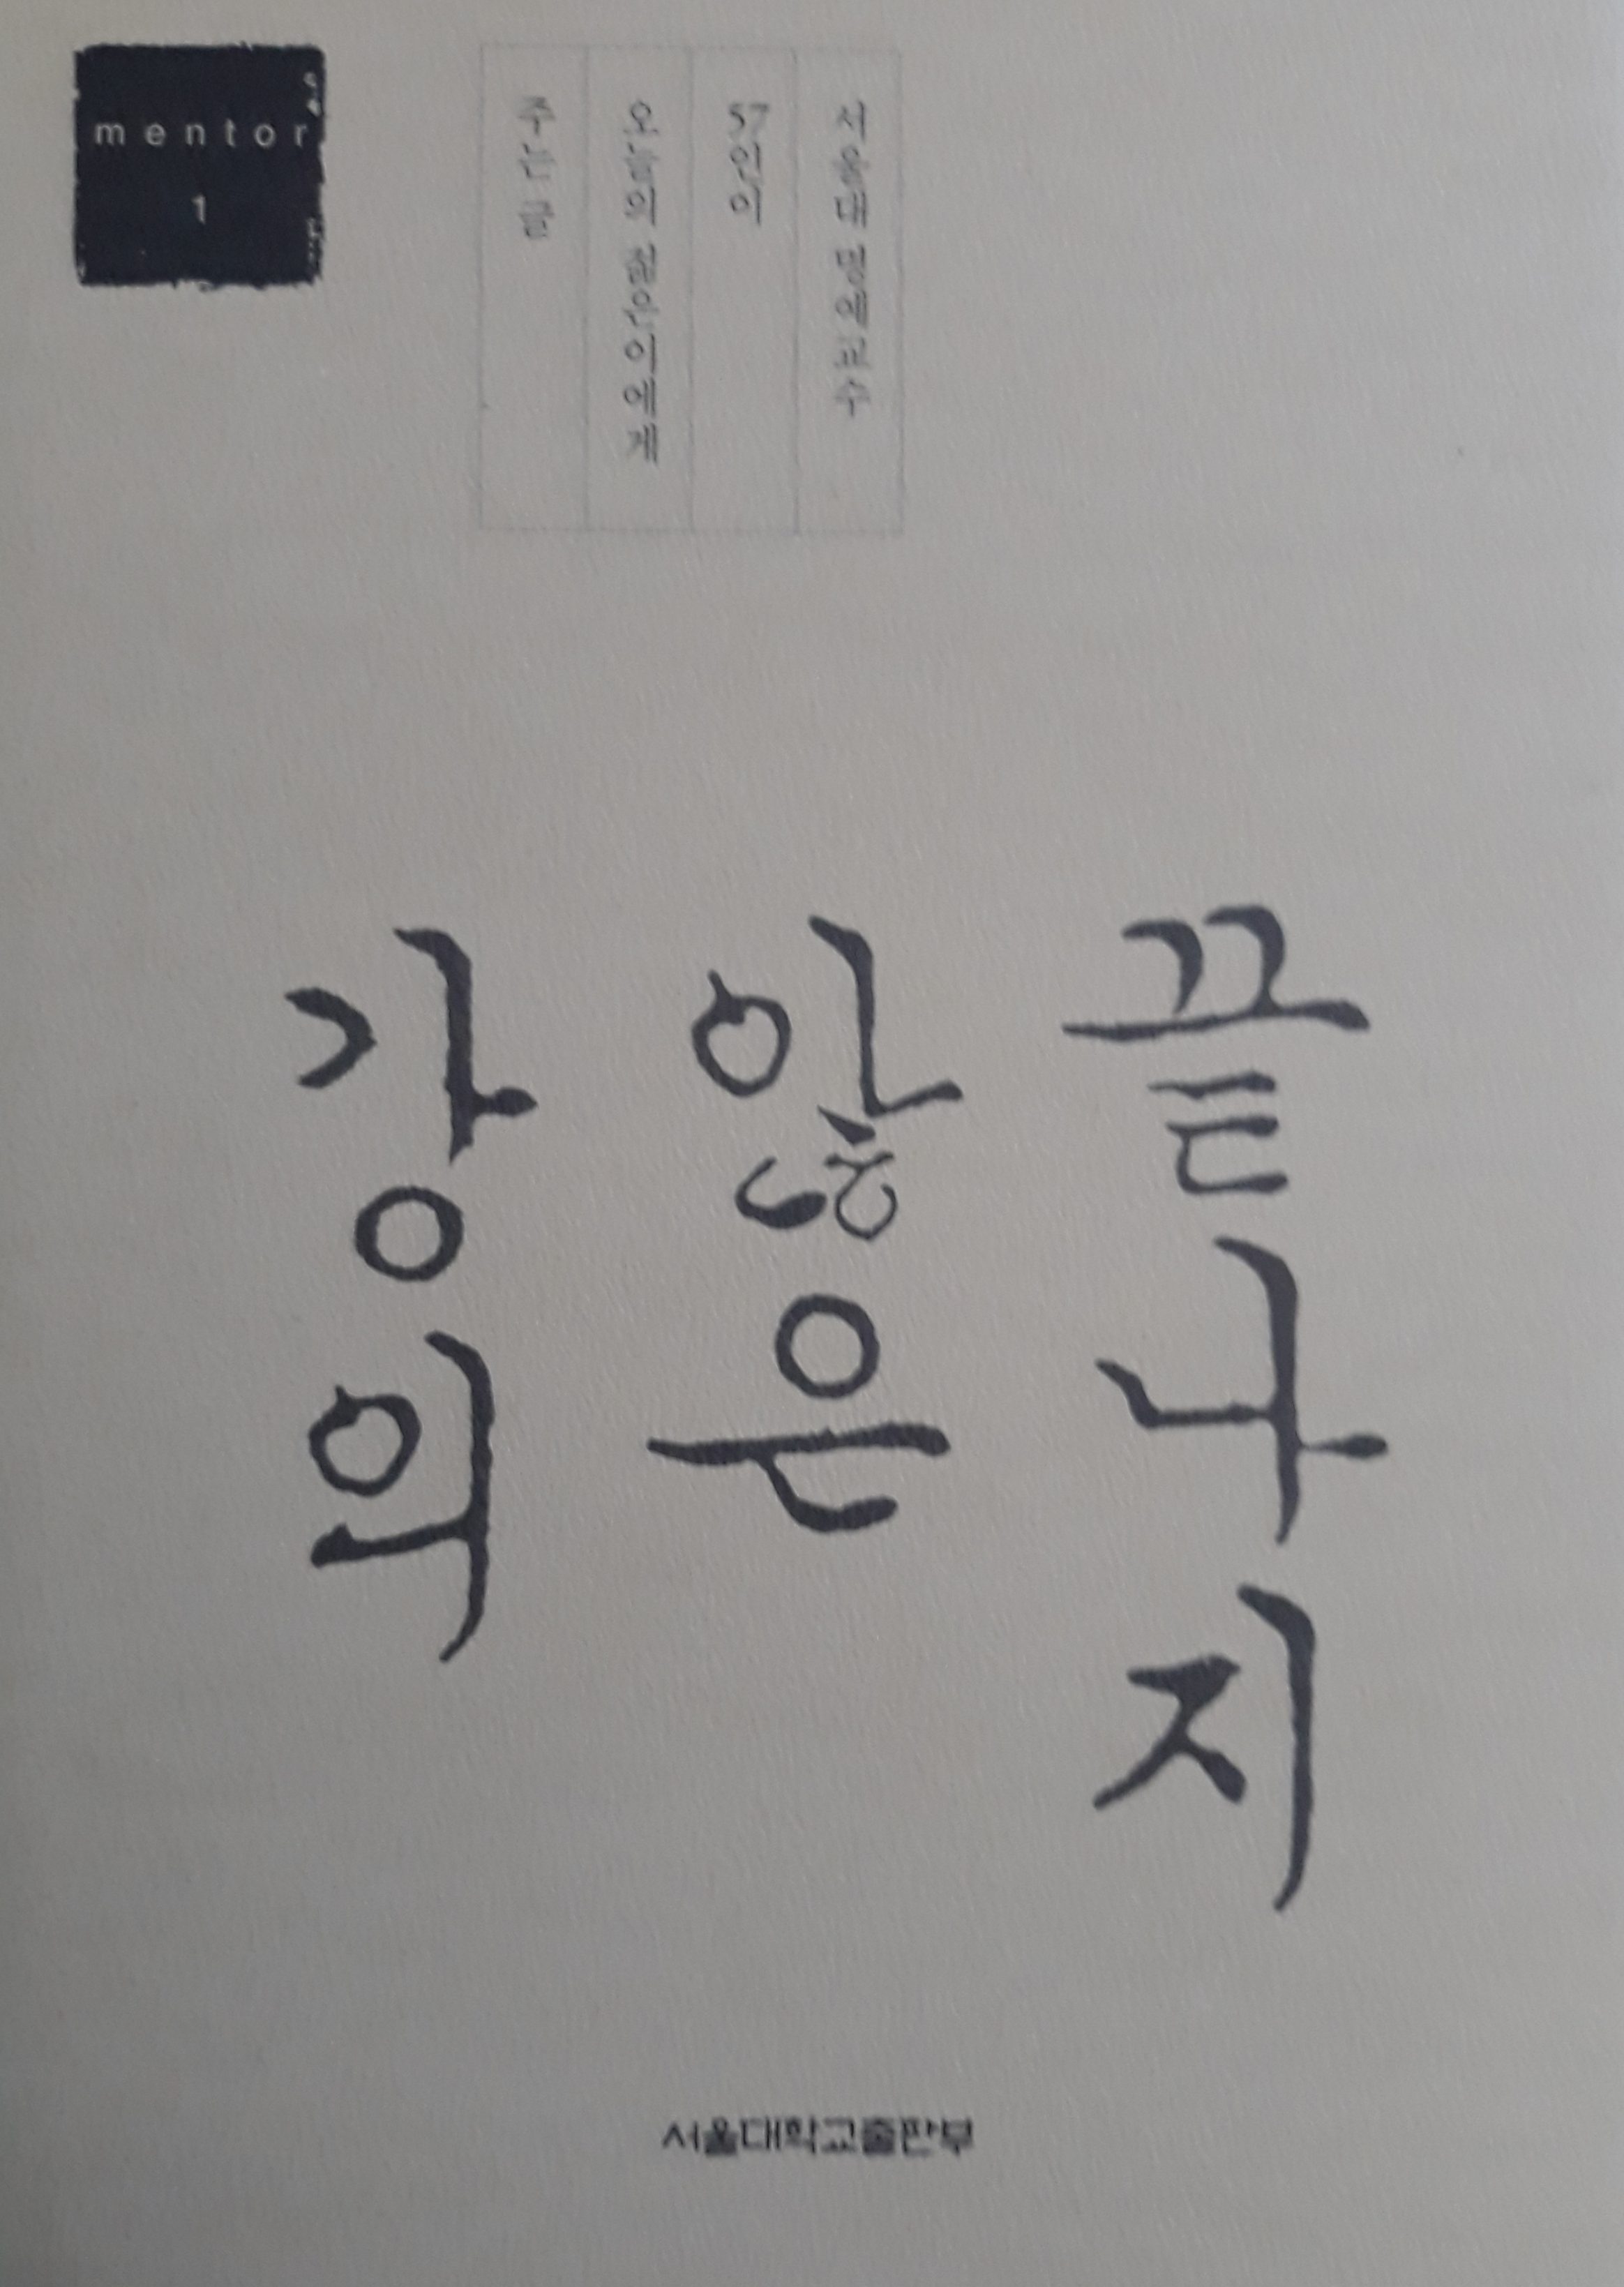 mentor
1
서울대 명예교수
57인이
오늘의 젊은이에게
주는 글
끝나지
않은
강의
서울대학교출판부